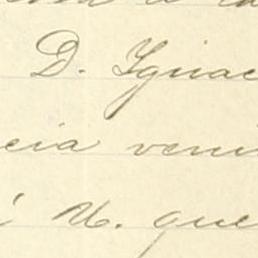 D. Ignac
cia veni
á U. que